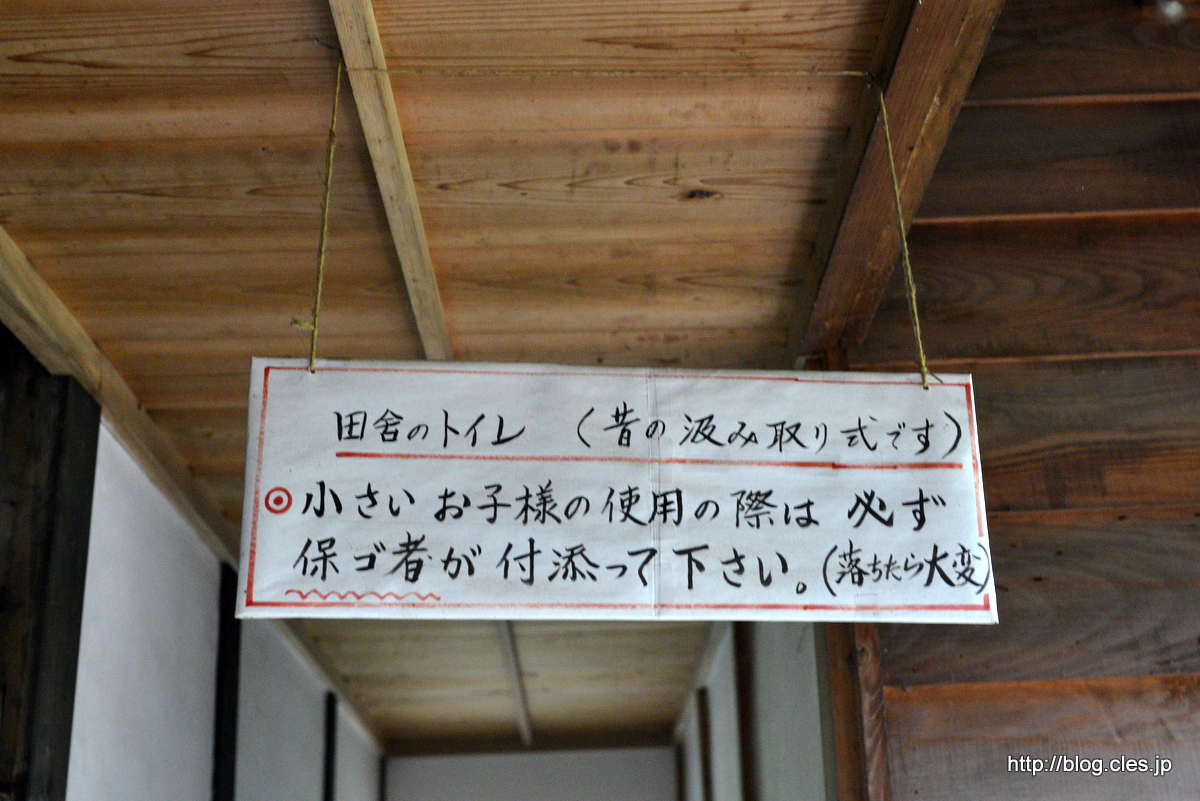 田舎のトイレ (昔の汲み取り式です)
◎小さいお子様の使用の際は 必ず
保ゴ者が付添って下さい。(落ちたら大変)
http://blog.cles.jp